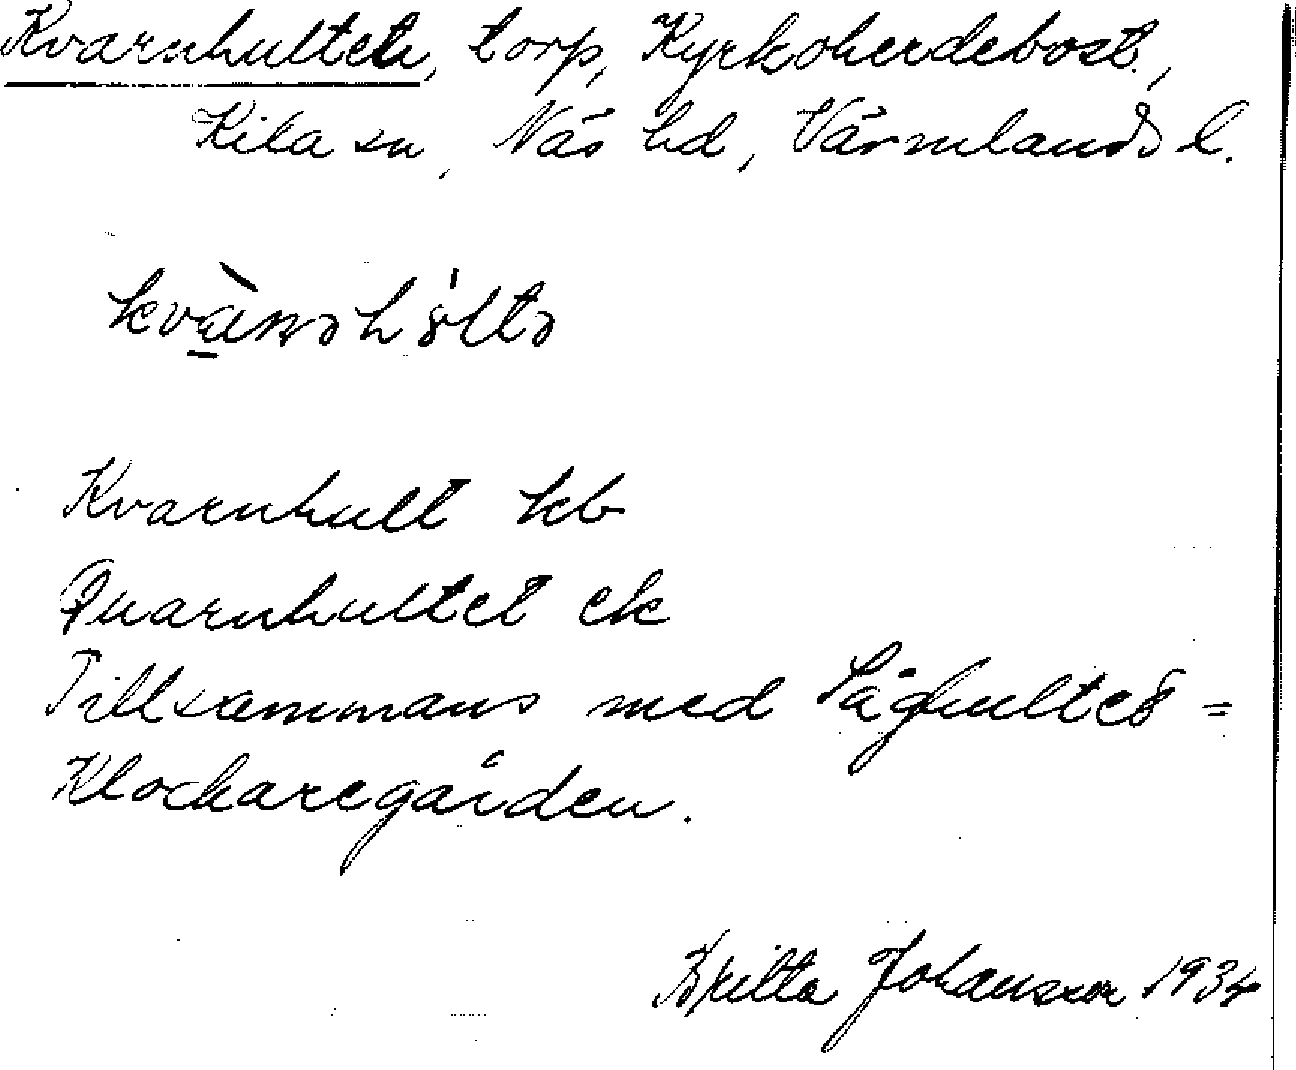 Kvarnhultet, torp, Kyrkoherdebost.,
Kila sn, Näs hd, Värmlands l.
Kvarnhult kb
Quarnhultet ek
Tillsammans med Såghultet =
Klockaregården.
Britta Johansson 1934